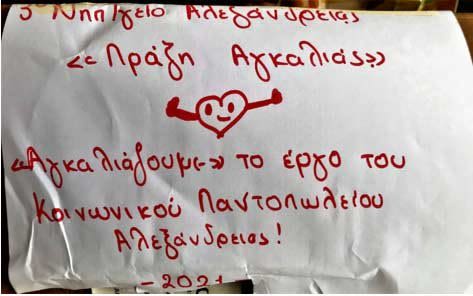 3ο Νηπ/γείο Αλεξάνδρειας
«Πράξη Αγκαλιάς»
«Αγκαλιάζουμε» το έργο του
Κοινωνικού Παντοπωλείου
Αλεξάνδρειας!
-2021